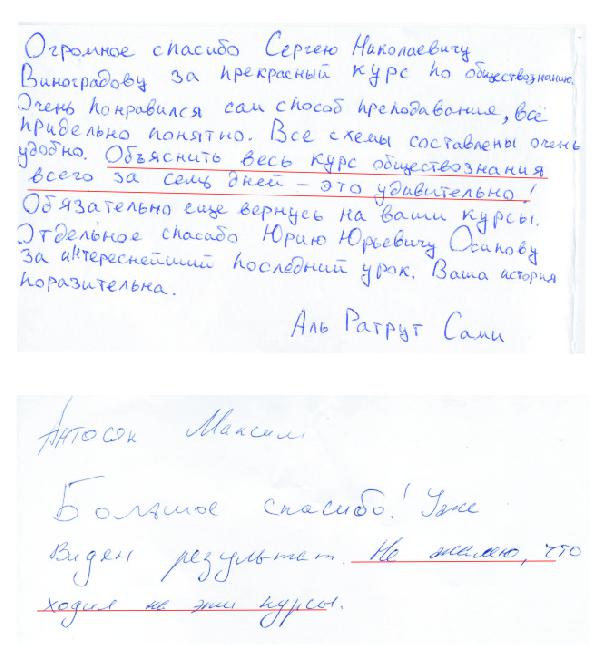 Огромное спасибо Сергею Николаевичу
Виноградову за прекрасный курс по обществознанию.
Очень понравился сам способ преподавания, всё
придельно понятно. Все схемы составлены очень
удобно. Объяснить весь курс обществознания
всего за семь дней – это удивительно!
Обязательно еще вернусь на ваши курсы.
Отдельное спасибо Юрию Юрьевичу Осипову
за интереснейший последний урок. Ваша история
поразительна.
Аль Ратрут Сами
Антосяк Максим
Большое спасибо! Уже
виден результат. Не жалею, что
ходил на эти курсы.